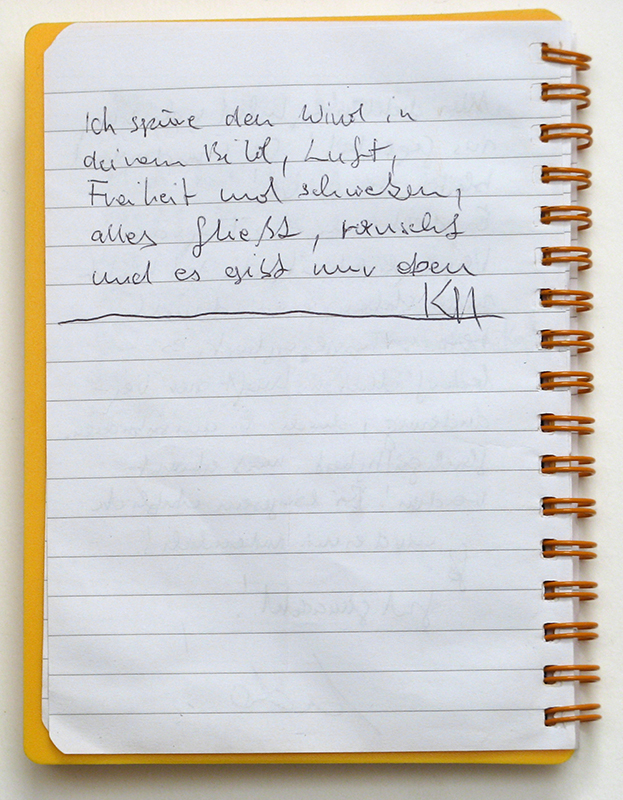 Ich spüre den Wind in
deinem Bild, Luft,
Freiheit und schweben,
alles fließt, rauscht
und es gibt nur oben
KH